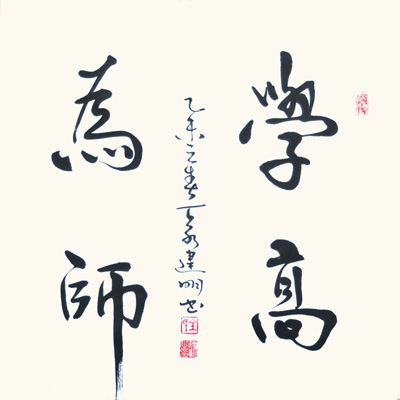 學高
為師
乙未之春建明书